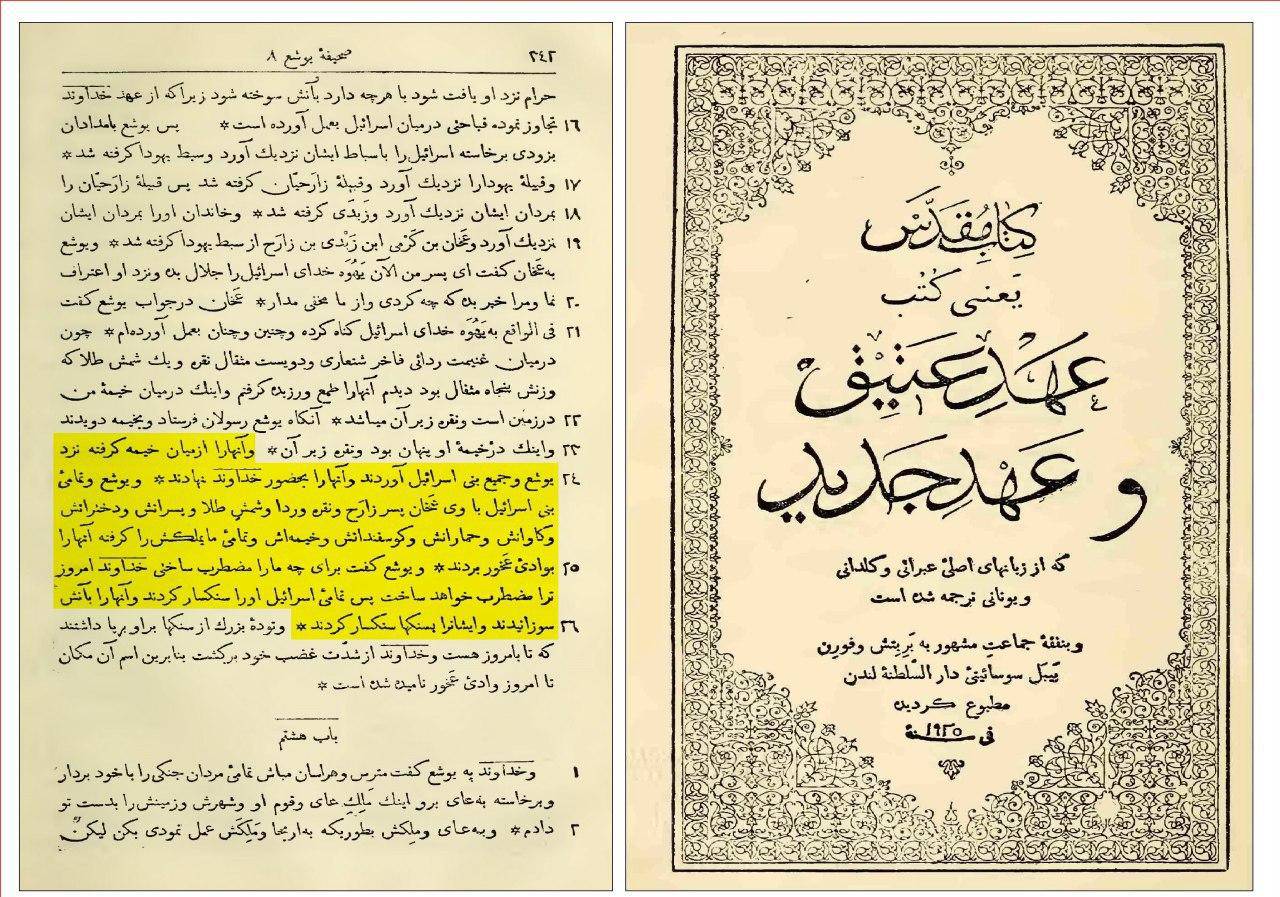 ٢٤٢
صحیفهٔ یوشع ٨
حرام نزد او یافت شود با هرچه دارد بآتش سوخته شود زیرا که از عهد خداوند
١٦ تجاوز نموده قباحتی درمیان اسرائیل بعمل آورده است * پس یوشع بامدادان
بزودی برخاسته اسرائیل را باسباط ایشان نزدیك آورد وسبط یهودا گرفته شد *
١٧ وقبیلهٔ یهودارا نزدیك آورد وقبیلهٔ زارَحیّان گرفته شد پس قبیلهٔ زارَحیّان را
١٨ بمردان ایشان نزدیك آورد وزَبْدی گرفته شد * وخاندان اورا بمردان ایشان
١٩ نزدیك آورد وعَخان بن کَرْمی ابن زَبْدی بن زارَح از سبط یهودا گرفته شد * ویوشع
به عَخان گفت ای پسر من الآن یَهُوَه خدای اسرائیل را جلال بده ونزد او اعتراف
٢٠ نما ومرا خبر بده که چه کردی واز ما مخفی مدار * عَخان درجواب یوشع گفت
٢١ فی الواقع به یَهُوَه خدای اسرائیل گناه کرده وچنین وچنان بعمل آورده‌ام * چون
درمیان غنیمت ردائی فاخر شنعاری ودویست مثقال نقره ویك شمش طلا که
وزنش پنجاه مثقال بود دیدم آنهارا طمع ورزیده گرفتم واینك درمیان خیمهٔ من
٢٢ درزمین است ونقره زیر آن میباشد * آنگاه یوشع رسولان فرستاد وبخیمه دویدند
٢٣ واینك درخیمهٔ او پنهان بود ونقره زیر آن * وآنهارا ازمیان خیمه گرفته نزد
٢٤ یوشع وجمیع بنی اسرائیل آوردند وآنهارا بحضور خداوند نهادند * ویوشع وتمامئ
بنی اسرائیل با وی عَخان پسر زارَح ونقره وردا وشمش طلا وپسرانش ودخترانش
وگاوانش وحمارانش وگوسفندانش وخیمه‌اش وتمامئ مایملکش را گرفته آنهارا
٢٥ بوادئ عَخور بردند * ویوشع گفت برای چه مارا مضطرب ساختی خداوند امروز
ترا مضطرب خواهد ساخت پس تمامئ اسرائیل اورا سنگسار کردند وآنهارا بآتش
٢٦ سوزانیدند وایشانرا بسنگها سنگسار کردند * وتودهٔ بزرگ از سنگها براو برپا داشتند
که تا بامروز هست وخداوند از شدّت غضب خود برگشت بنابرین اسم آن مکان
تا امروز وادئ عَخور نامیده شده است *
باب هشتم
١ وخداوند به یوشع گفت مترس وهراسان مباش تمامئ مردان جنگی را با خود بردار
وبرخاسته به عای برو اینك مَلِكِ عای وقوم او وشهرش وزمینش را بدست تو
٢ دادم * وبه عای وملِکش بطوریکه به اریحا ومَلِکَش عمل نمودی بکن لیکن
کتاب مُقَدَّس
یَعنی کُتُب
عهدِ عَتیق
و عهدِ جدید
که از زبانهای اصلئ عبرانی وکلدانی
ویونانی ترجمه شده است
وبنفقهٔ جماعت مشهور به بَرِیتِش وفورِن
بَیبَل سوسائیتئ دار السّلطنهٔ لندن
مطبوع گردیده
فی سنهٔ ١٩٢٥